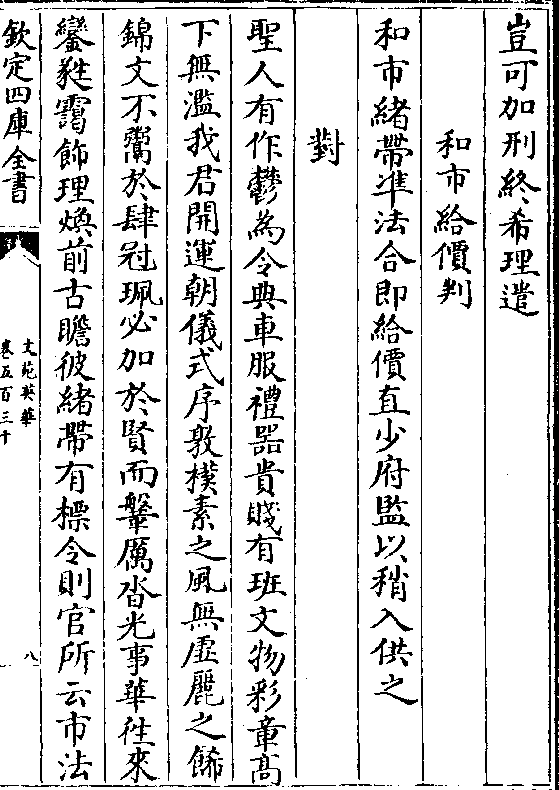 豈可加刑終希理遣
和市給價判
和市緒帶準法合即給價直少府監以稍入供之
對
聖人有作鬱為令典車服禮器貴賤有班文物彩章髙
下無濫我君開運朝儀式序敦樸素之風無虛麗之飾
錦文不鬻於肆冠珮必加於賢而鞶厲沓光事華徃來
鑾甤靄飾理煥前古瞻彼緒帶有標令則官所云市法
欽定四庫全書
文苑英華
卷五百三十
八